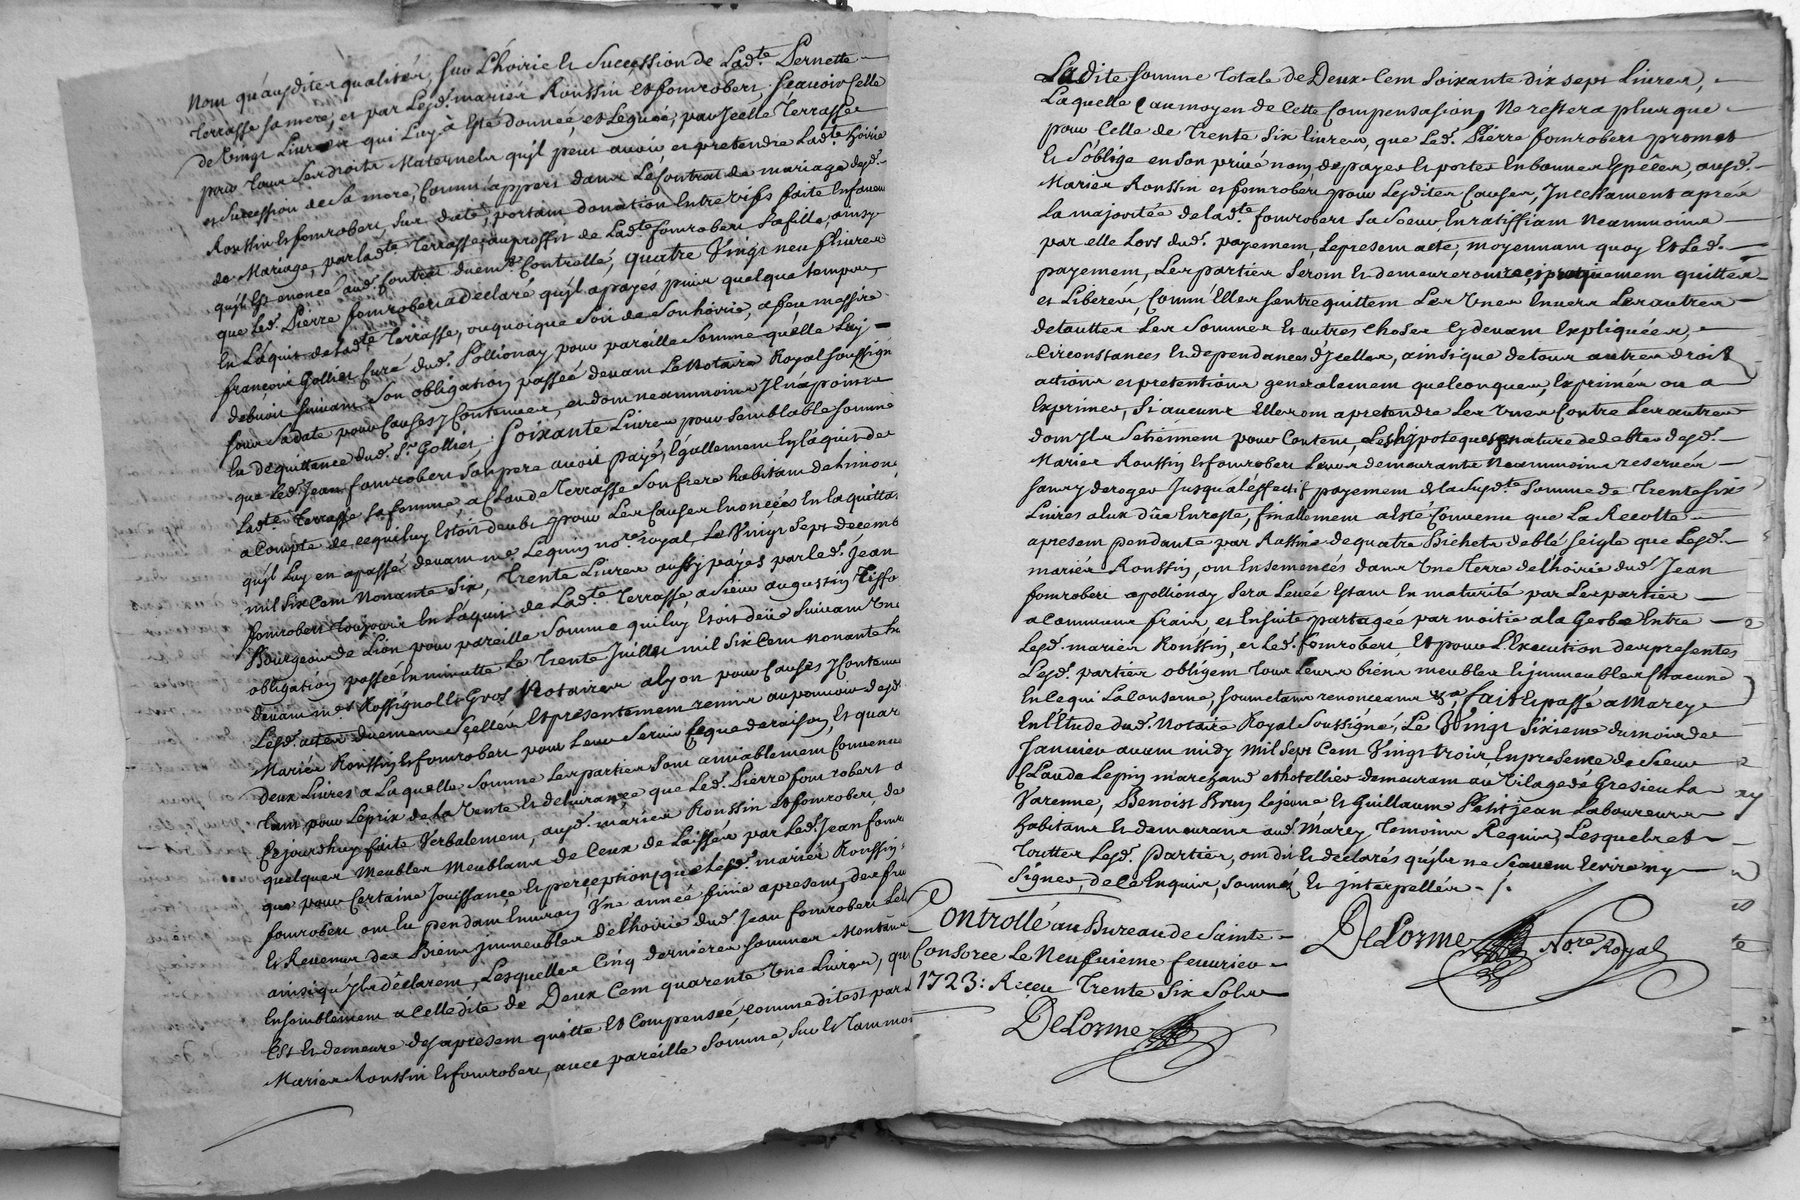 Nom qu'ausdites qualités, sur L'hoirie et Succession de Lad.te Pernette
Terrasse sa mere, et par Lesd. mariés Roussin et fomrobert ; sçavoir Celle
de Vingt Livres qui Luy a Esté donnée, et Leguée, par Icelle Terrasse
pour tous ses droits Maternels qu'il peut avoir et pretendre Lad.te hoirie
et Succession de Sa mere, Comm'appert dans Le Contrat de mariage desd.
Roussin et fomrobert, sur daté, portant donation Entre vifs faite En faveur
de Mariage, par lad.te Terrasse, au proffit de Lad.te fomrobert Sa fille, ainsy
qu'il Est enoncé aud. Contrat duem.t Controllé, quatre Vingt neuf Livres
que Led. Pierre fomrobert a declaré qu'il a payés puis quelque tempour
En L'aquit de Lad.te Terrasse, ou quoique Soit de Son hoirie, a feu messire
françois Gollier Curé dud. Pollionay pour pareille Somme qu'elle Luy
debvoit Suivant Son obligation passée devant Le Notaire Royal Soussigné
Sous Sa date pour Causes y Contenues, et dont neammoins Il n'a point
Eu de quittance dud. S.r Gollier ; Soixante Livres pour Semblable Somme
que Led. Jean fomrobert Son pere avoit payé, Egallement En l'aquit de
Lad.te Terrasse Sa femme, a Claude Terrasse Son frere habitant de Limone
a Compte de ce qui luy Estoit deubt pour Les Causes Enoncées En la quitta
qu'il Luy en a passé devant me Lequin no.re royal, Le Vingt Sept decemb
mil Six Cent Nonante Six, Trente Livres aussy payés par led. Jean
fomrobert Toujours En L'aquit de Lad.te Terrasse, a Sieur augustin Tiffo
Bourgeois de Lion pour pareille Somme qui luy Etoit deüe Suivant Une
obligation passée En minutte Le Trente Juillet mil Six Cent Nonante
devant m.es Rossignol et Gros Notaires a lyon pour Causes y Contenue
Lesd. actes duement Scellés Et presentement remis au pouvoir desd.
Mariés Roussin et fomrobert pour Leur Servir Ce que de raison, Et quar
deux Livres a Laquelle Somme Les parties Sont amiablement Convenu
Tant pour Le prix de la Vente Et delivrance que Led. Pierre fomrobert a
Cejourd'huy faite Verbalement, ausd. mariés Roussin et fomrobert, de
quelques Meubles Meublans de Ceux de Laissés par Led. Jean fomr
que pour Certaine Jouissance Et perception que Lesd. mariés Roussin
fomrobert ont Eu pendant Environ Une année finie a present, des fru
Et Revenus des Biens Immeubles de L'hoirie dud. Jean fomrobert
ainsi qu'ils Declarent, Lesquelles Cinq dernieres Sommes Montant
Ensemblement a Celle dite de Deux Cent quarente Une Livres, qui
Est Et demeure des apresent quitte Et Compensée, comme dit est par
Mariés Roussin Et fomrobert, avec pareille Somme, sur Et Tammoi
Ladite Somme totale de Deux Cent Soixante dix sept Livres,
Laquelle (au moyen de Cette Compensasion) Ne restera plus que
pour Celle de Trente Six Livres, que Led. Pierre fomrobert promet
Et S'oblige en son privé nom, de payer Et porter En bonnes Espêces, ausd.
Mariés Roussin et fomrobert pour Lesdites Causes, Incessament apres
La majoritée de lad.te fomrobert Sa Soeur, En ratiffiant Neammoins
par elle Lors dud. payement, Le present acte, moyennant quoy Et Led.
payement, Les parties Seront Et demeureront reciproquement quittes
et Liberés, Comm'Elles s'entrequittent Les Unes Envers Les autres
de touttes Les Sommes Et autres Choses Cy devant Expliquées,
Circonstances Et dependances d'Icelles, ainsi que de tous autres droits
actions et pretentions generalement quelconques, Exprimés ou a
Exprimer, Si aucunes Elles ont a pretendre Les Unes Contre Les autres
dont Ils Se tiennent pour Contens, Les hypoteques et nature de debtes desd.
Mariés Roussin Et fomrobert Leurs demeurants Neammoins reservés
Sans y deroger Jusqu'al'effectif payement de la Susd.te Somme de Trente Six
Livres a Eux dûe En reste, finallement a Esté Convenu que La Recolte
apresent pendante par Rassine de quatre Bichets de blé Seigle que Lesd.
mariés Roussin, ont Ensemencés dans Une Terre de L'hoirie dud. Jean
fomrobert a Pollionay Sera Levée Etant En maturité par Les parties
a Communs frais, et En suite partagée par moitié a la Gerbe Entre
Lesd. mariés Roussin, et Led. fomrobert, Et pour L'Execution des presentes
Lesd. parties obligent tous Leurs biens meubles Et Immeubles Chacune
En Ce qui La Conserne, Soumetans renonceans &a, fait Et passé a Marcy
En L'Etude dud. Notaire Royal Soussigné, Le Vingt Sixieme du mois de
Janvier avant midy Mil Sept Cent Vingt trois, En presence de Sieur
Claude Lepin marchand et hotellier demeurant au Vilage de Gresieu La
Varenne, Benoist Brun Le jeune Et Guillaume Petitjean Laboureurs
habitans Et demeurans aud. Marcy, Temoins Requis, Lesquels et
Touttes Lesd. parties, ont dit Et declarés qu'ils ne Sçavent Ecrire ny
Signer, de Ce Enquis, Sommés Et Interpellés ./.
DeLorme No.re Royal
Controllé au Bureau de Sainte
Consorce Le Neufvieme fevrier
1723 : Receu Trente Six Sols
DeLorme